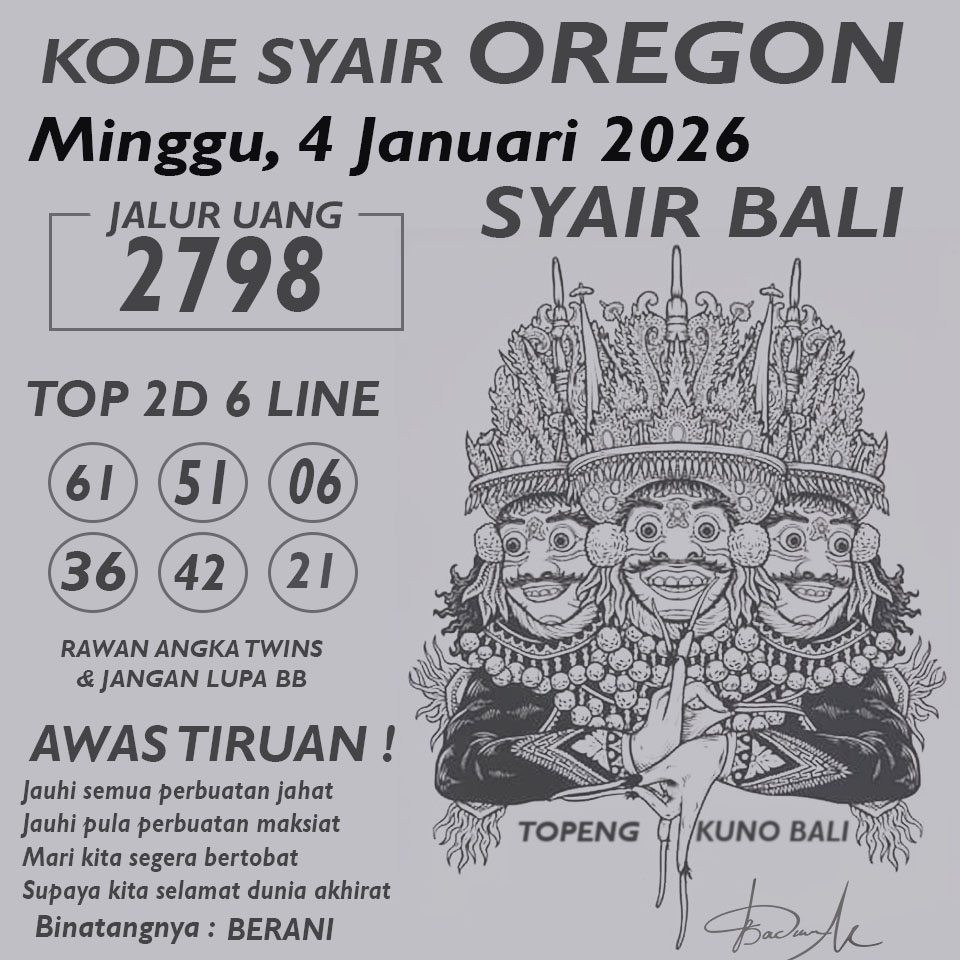 KODE SYAIR OREGON
Minggu, 4 Januari 2026
SYAIR BALI
JALUR UANG
2798
TOP 2D 6 LINE
61 51 06
36 42 21
RAWAN ANGKA TWINS
& JANGAN LUPA BB
AWAS TIRUAN !
Jauhi semua perbuatan jahat
Jauhi pula perbuatan maksiat
Mari kita segera bertobat
Supaya kita selamat dunia akhirat
Binatangnya : BERANI
TOPENG KUNO BALI